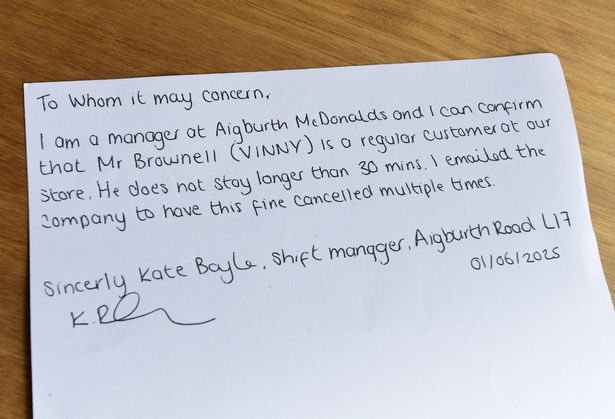 To Whom it may concern,
I am a manager at Aigburth McDonalds and I can confirm
that Mr Brownell (VINNY) is a regular customer at our
store. He does not stay longer than 30 mins. I emailed the
company to have this fine cancelled multiple times.
Sincerly Kate Boyle, Shift manager, Aigburth Road L17
01/06/2025